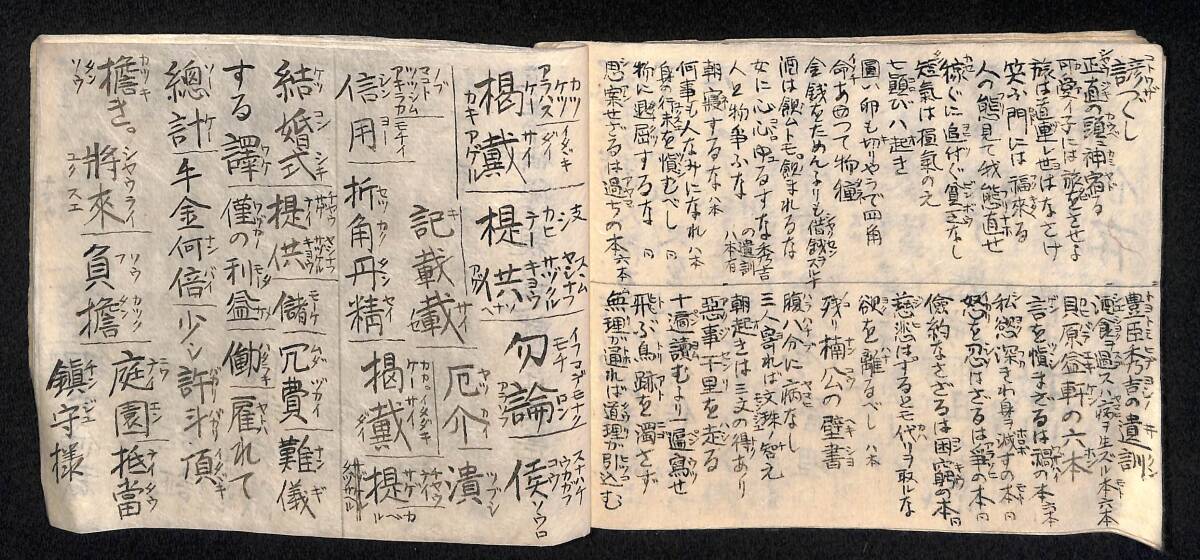 諺づくし
正直の頭に神宿る
可愛イ子には旅をさせよ
旅は道連レ世はなさけ
笑ふ門には福來る
人の態見て我態直せ
稼ぐに追付く貧乏なし
短氣は損氣の
七顛び八起き
圓い卵も切りやうで四角
命あつて物種
金銭をためんよりも借銭スルナ
酒は飲ムトモ飲まれるな
女に心ゆるすな 秀吉の遺訓
人と物爭ふな 八本有
朝寢するな 八本
何事も人なみになれ 八本
身の行末を慎むべし
物に退屈するな
思案せざるは過ちの本 六本
豊臣秀吉の遺訓
酒食ヲ過スハ病ヲ生ズル本 六本
貝原益軒の六本
言を慎まざるは禍の本 六本
私慾深きわ身ヲ滅すの本
怒を忍ばざるは爭の本
儉約なさざるは困窮の本
慈悲はするとモ代リヲ取ルな
欲を離るべし 八本
残り楠公の壁書
腹八分に病なし
三人寄れば文殊の知え
朝起きは三文の得あり
惡事千里を走る
十遍讀むより一遍寫せ
飛ぶ鳥跡を濁さず
無理が通れば道理が引込む
掲載 提供 勿論 候
記載 載 厄介 潰
信用 折角 丹精 掲載 提
結婚式 提供 儲 冗費 難儀
する譯 僅の利益 働 雇れて
總計 年金 何倍 少シ 許 斗 頂
擔き。將來 負擔 庭園 抵當
鎮守様